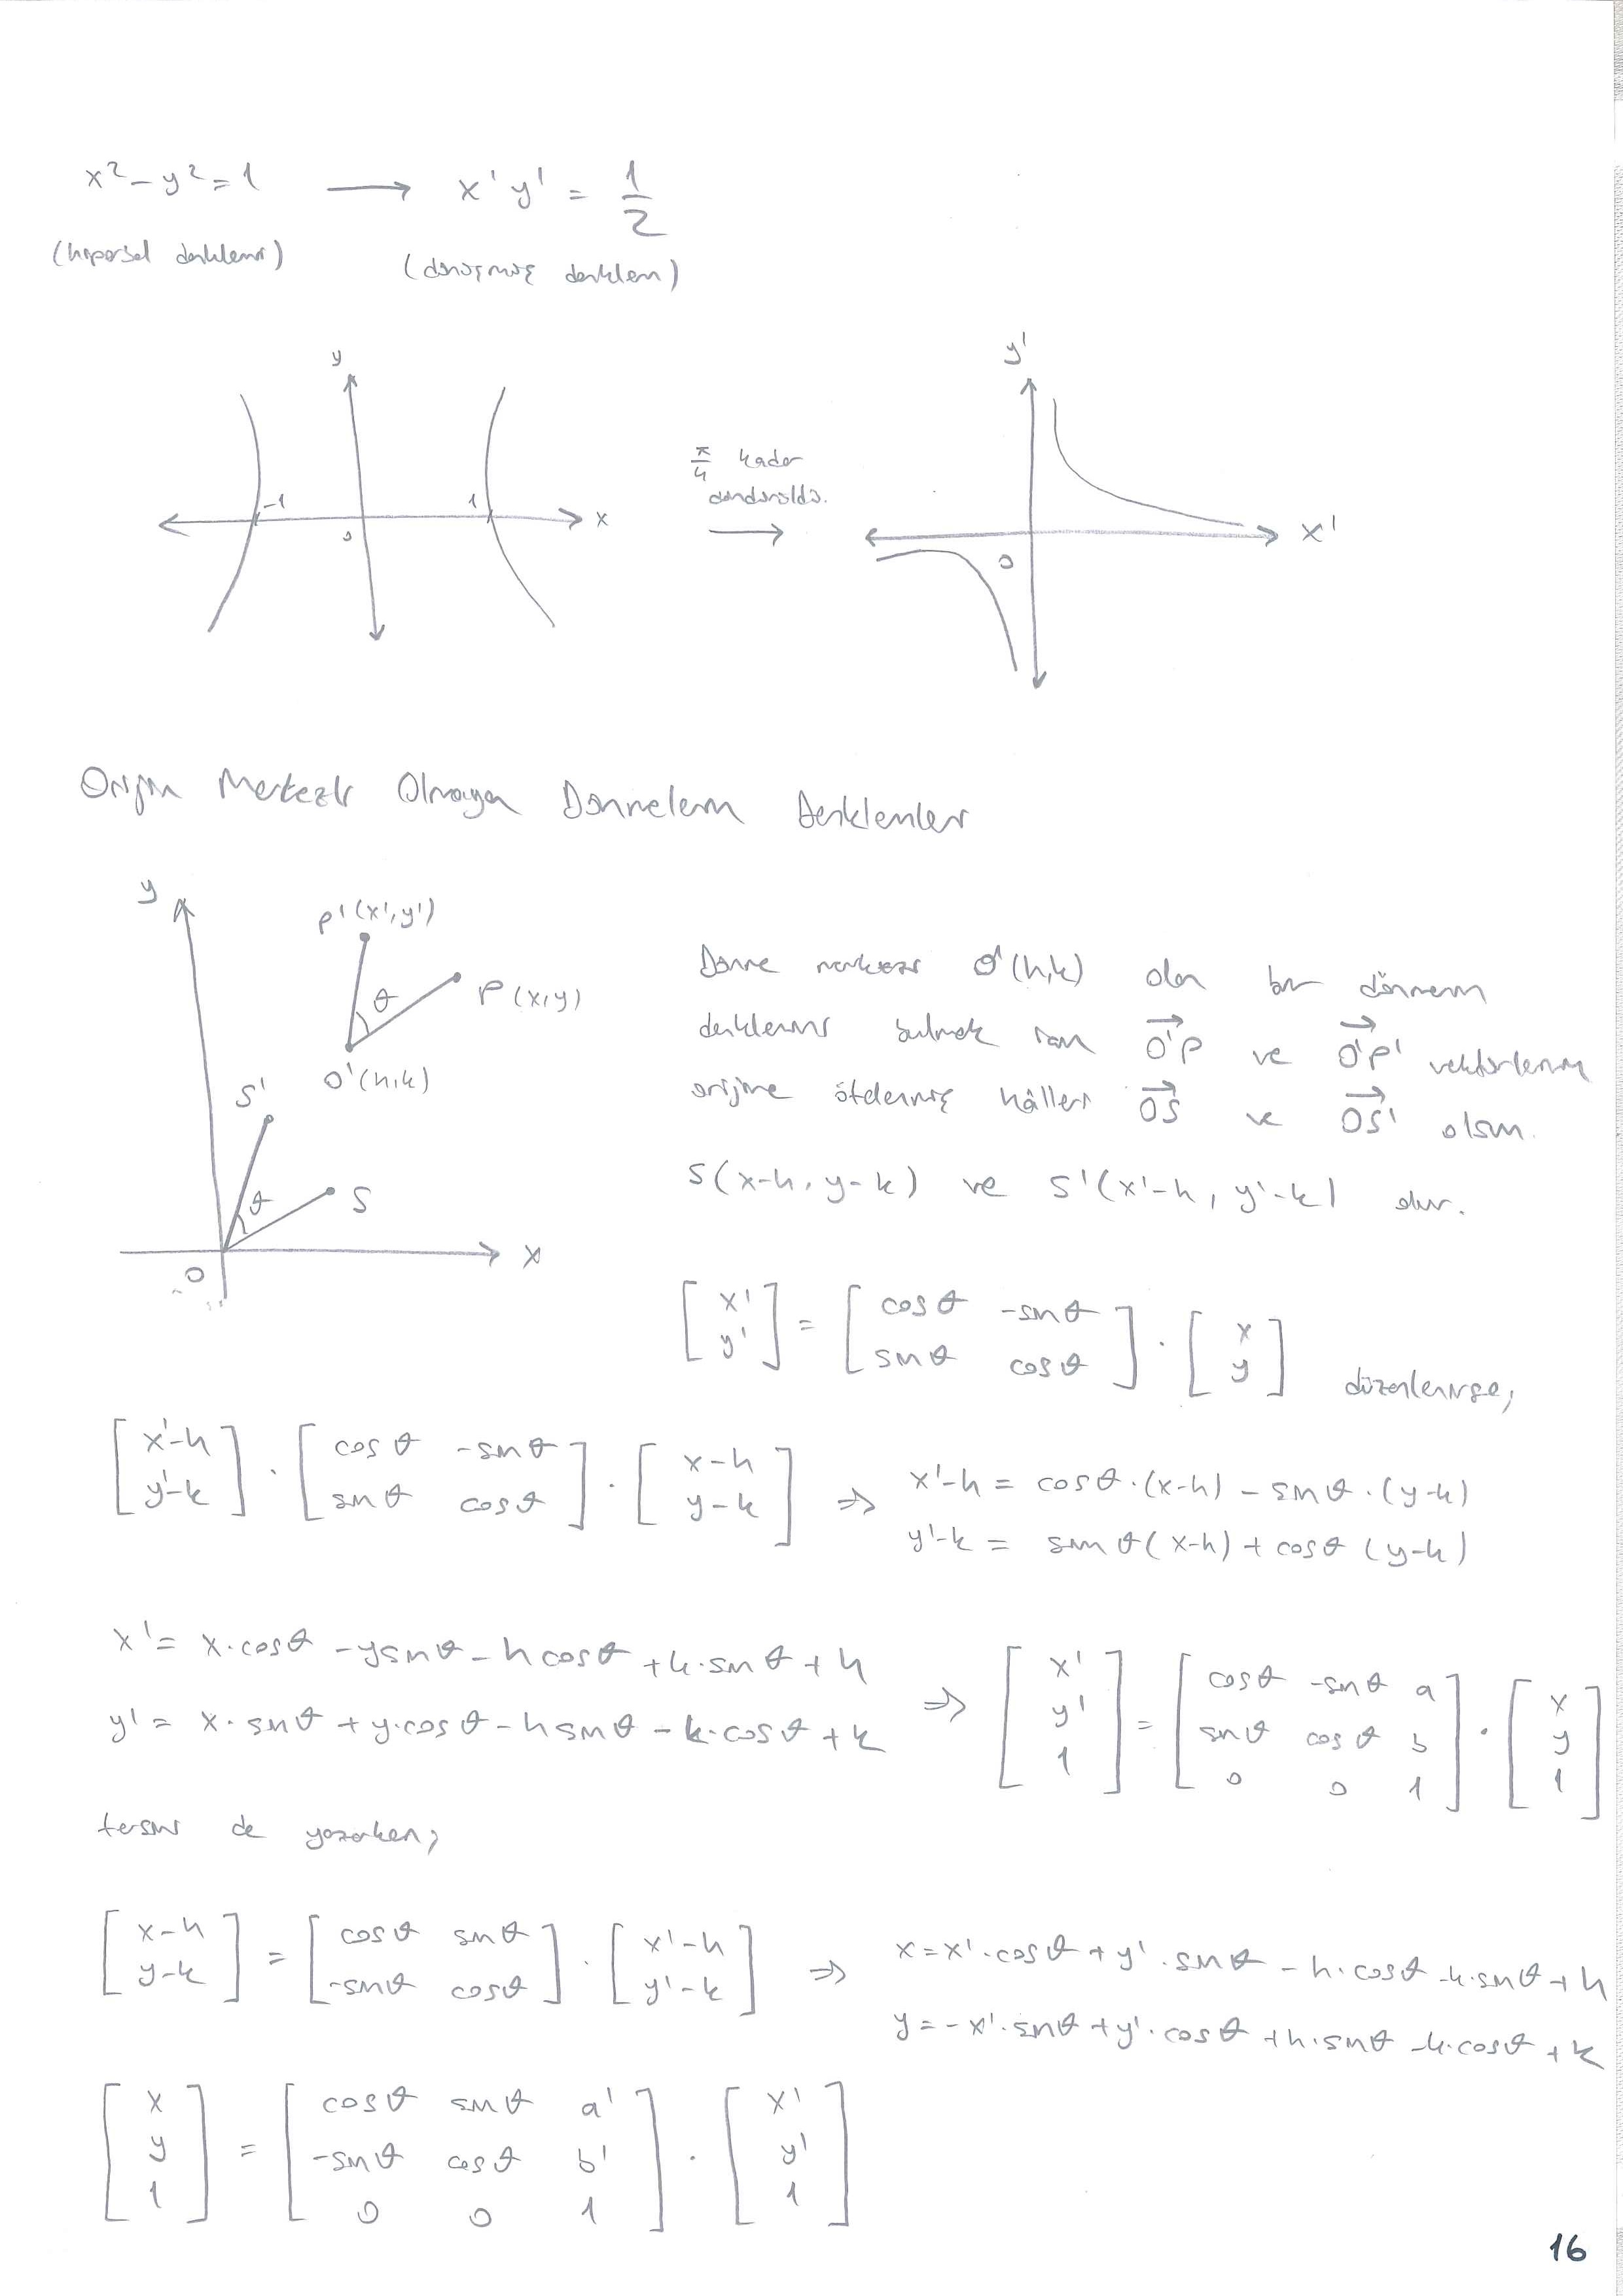 x² - y² = 1 → x'y' = 1/2
(hiperbol denklemi) (dönüşmüş denklem)
y
-1 1 x
0
π/4 kadar
döndürüldü.
→
y'
x'
0
Orijin Merkezli Olmayan Dönmelerin Denklemleri
y
P'(x',y')
θ P(x,y)
O'(h,k)
S'
θ S
O x
Dönme merkezi O'(h,k) olan bir dönmenin
denklemini bulmak için O'P ve O'P' vektörlerinin
orijine ötelenmiş hâlleri OS ve OS' olsun.
S(x-h, y-k) ve S'(x'-h, y'-k) dır.
[x' y'] = [cosθ -sinθ sinθ cosθ] · [x y] düzenlenirse;
[x'-h y'-k] · [cosθ -sinθ sinθ cosθ] · [x-h y-k] ⇒ x'-h = cosθ·(x-h) - sinθ·(y-k)
y'-k = sinθ(x-h) + cosθ(y-k)
x' = x·cosθ - ysinθ - hcosθ + k·sinθ + h
y' = x·sinθ + y·cosθ - hsinθ - k·cosθ + k
⇒ [x' y' 1] = [cosθ -sinθ a sinθ cosθ b 0 0 1] · [x y 1]
tersini de yazarken;
[x-h y-k] = [cosθ sinθ -sinθ cosθ] · [x'-h y'-k] ⇒ x = x'·cosθ + y'·sinθ - h·cosθ - k·sinθ + h
y = -x'·sinθ + y'·cosθ + h·sinθ - k·cosθ + k
[x y 1] = [cosθ sinθ a' -sinθ cosθ b' 0 0 1] · [x' y' 1]
16